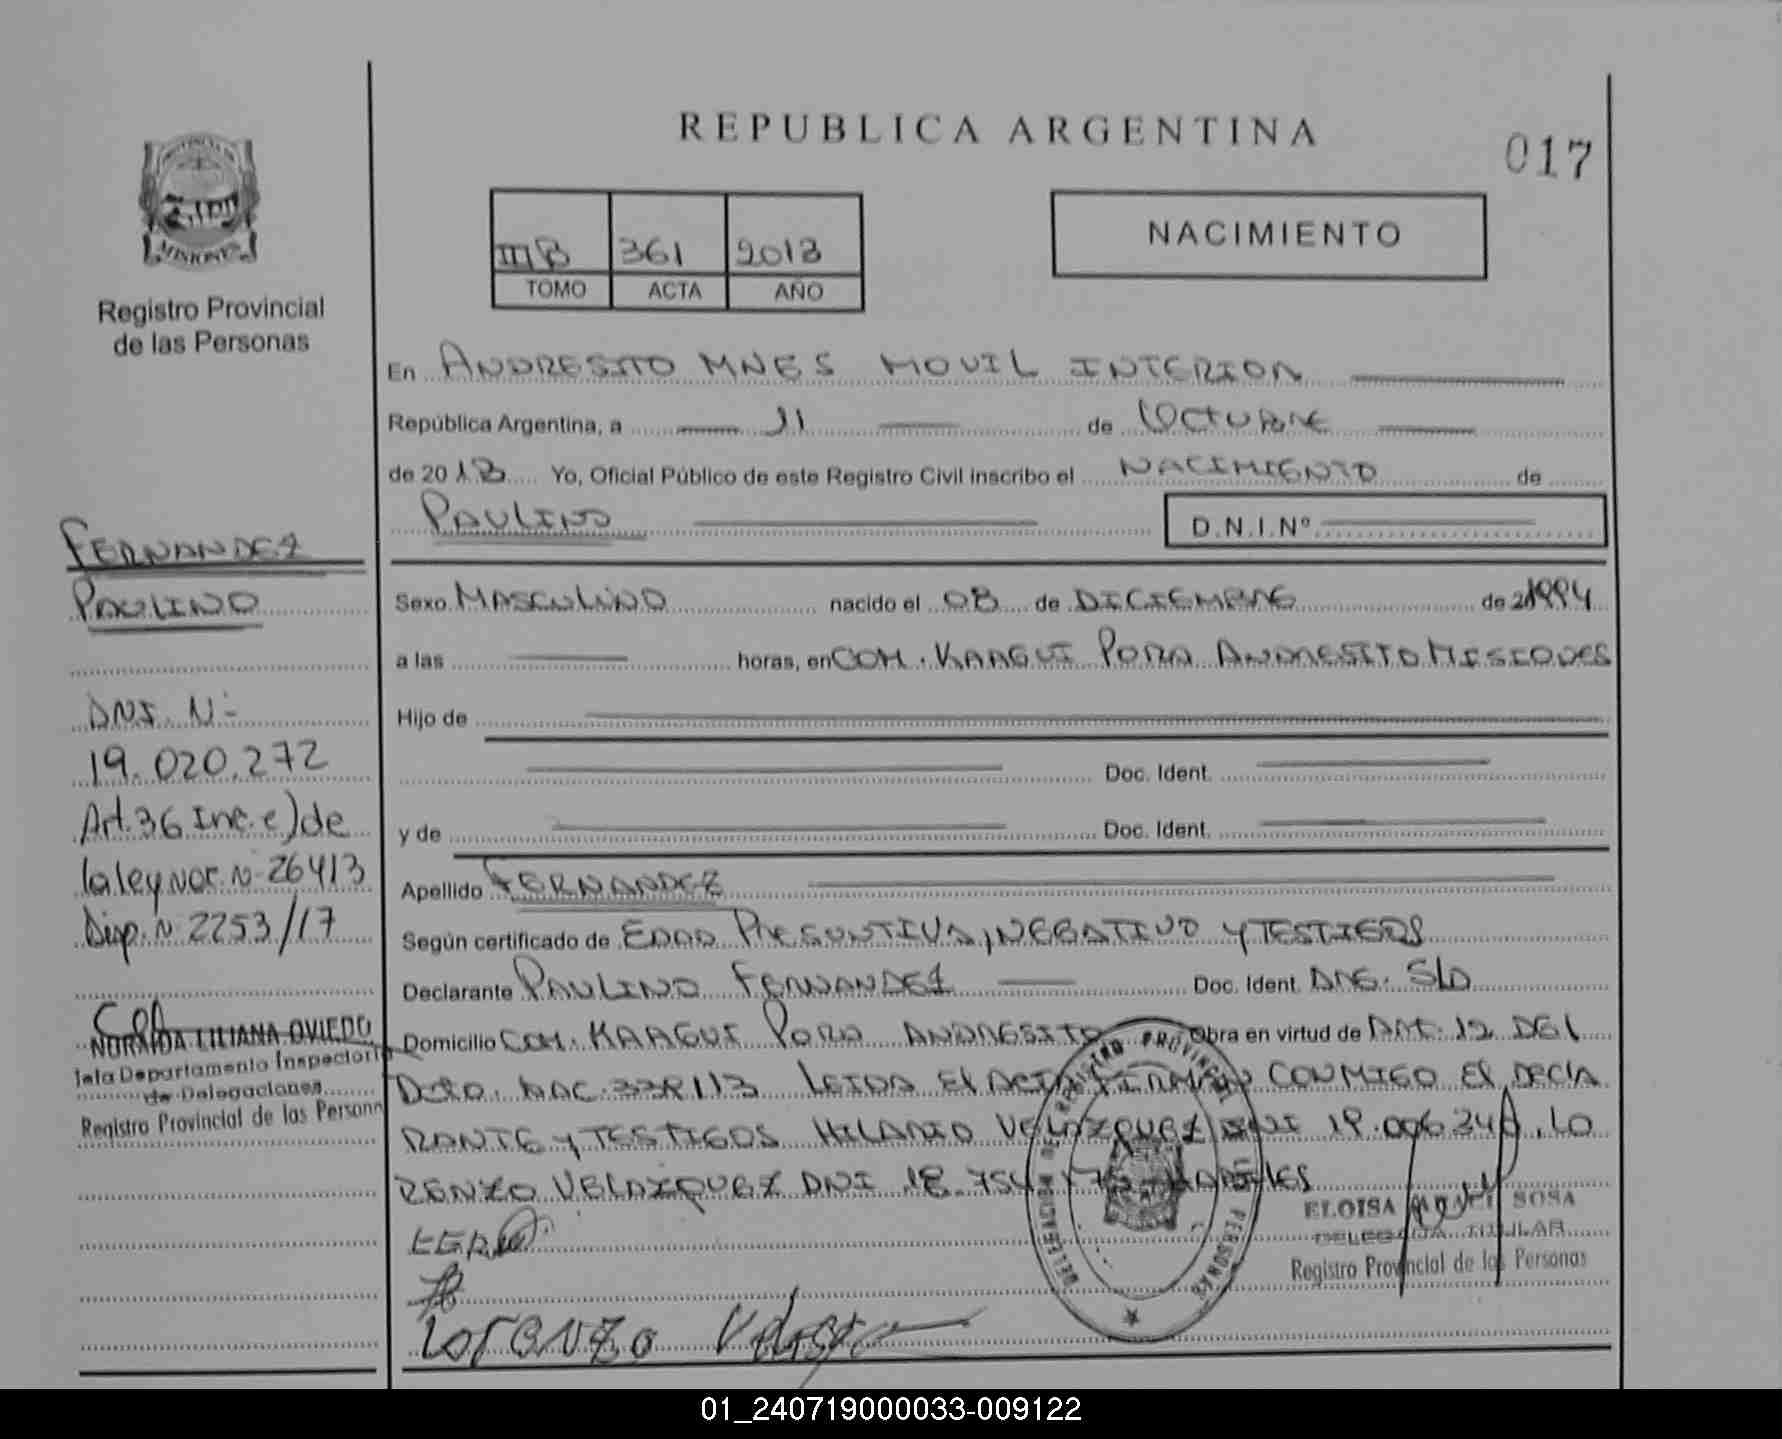 REPUBLICA ARGENTINA
017
MISIONES
Registro Provincial
de las Personas
IIIB 361 2013
TOMO ACTA AÑO
NACIMIENTO
En ANDRESITO MNES MOVIL INTERIOR
República Argentina, a 11 de OCTUBRE
de 2013 Yo, Oficial Público de este Registro Civil inscribo el NACIMIENTO de
PAULINO D.N.I.Nº
FERNANDEZ
PAULINO
DNI N-
19.020.272
Art.36 Inc.c) de
la ley nac. N- 26413
Disp. N 2253/17
NORAIDA LILIANA OVIEDO
Jefa Departamento Inspectoria
de Delegaciones
Registro Provincial de las Person
Sexo MASCULINO nacido el 08 de DICIEMBRE de 1994
a las horas, en COM. KAAGUI PORA ANDRESITO MISIONES
Hijo de
Doc. Ident.
y de Doc. Ident.
Apellido FERNANDEZ
Según certificado de EDAD PRESUNTIVA, NEGATIVO Y TESTIGOS
Declarante PAULINO FERNANDEZ Doc. Ident. DNI. S/D
Domicilio COM. KAAGUI PORA ANDRESITO Obra en virtud de ART. 12 DEL
DTO. 338/13 LEIDA EL ACTA FIRMAN CONMIGO EL DECLA
RANTE Y TESTIGOS HILARIO VELAZQUEZ DNI LO
RENZO VELAZQUEZ DNI 18.754
LORENZO Velasqe
REGISTRO PROVINCIAL PERSONAS
ELOISA SOSA
DELEGADA TITULAR
Registro Provincial de las Personas
01_240719000033-009122